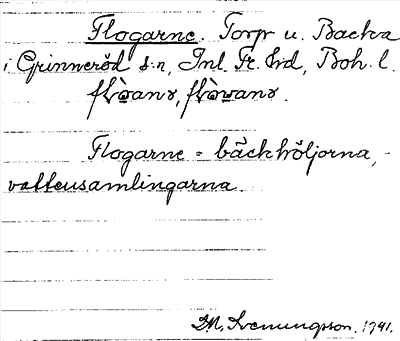 Flogarne. Torp u. Backa
i Grinneröd s:n, Inl. Fr. hd, Boh. l.
flo̬anɤ, flo̬wanɤ.
Flogarne = bäckhöljorna,
vattensamlingarna.
M. Svenungsson. 1941.